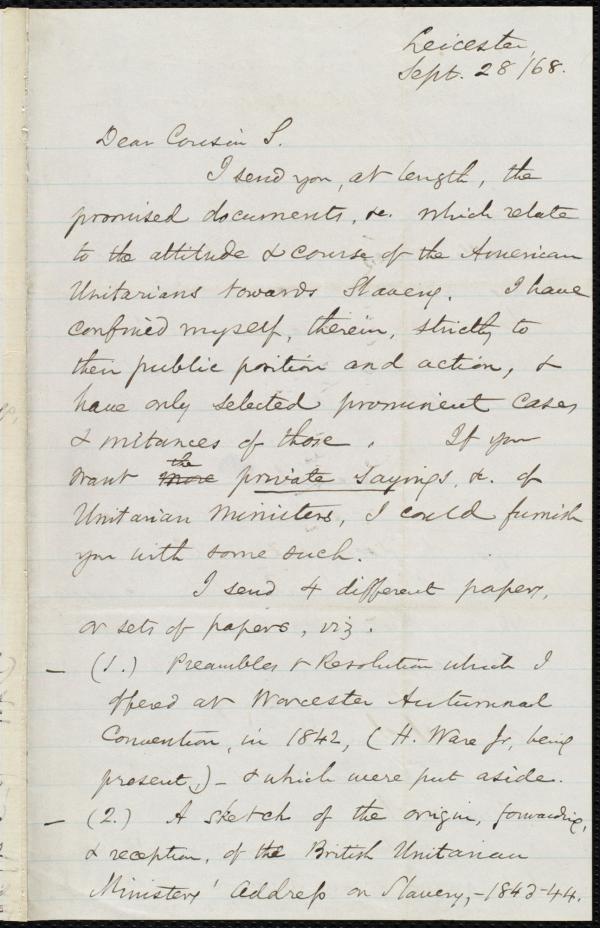 Leicester,
Sept. 28/68.
Dear Cousin S.
I send you, at length, the
promised documents, &c. which relate
to the attitude & course of the American
Unitarians towards Slavery. I have
confined myself, therein, strictly to
their public position and action, &
have only selected prominent cases
& instances of those. If you
want more the private sayings, &c. of
Unitarian Ministers, I could furnish
you with some such.
I send 4 different papers,
or sets of papers, viz.
— (1.) Preambles & Resolution which I
offered at Worcester Autumnal
Convention, in 1842, (H. Ware Jr, being
present,) — & which were put aside.
— (2.) A sketch of the origin, forwarding,
& reception, of the British Unitarian
Ministers' Address on Slavery, — 1843-44.